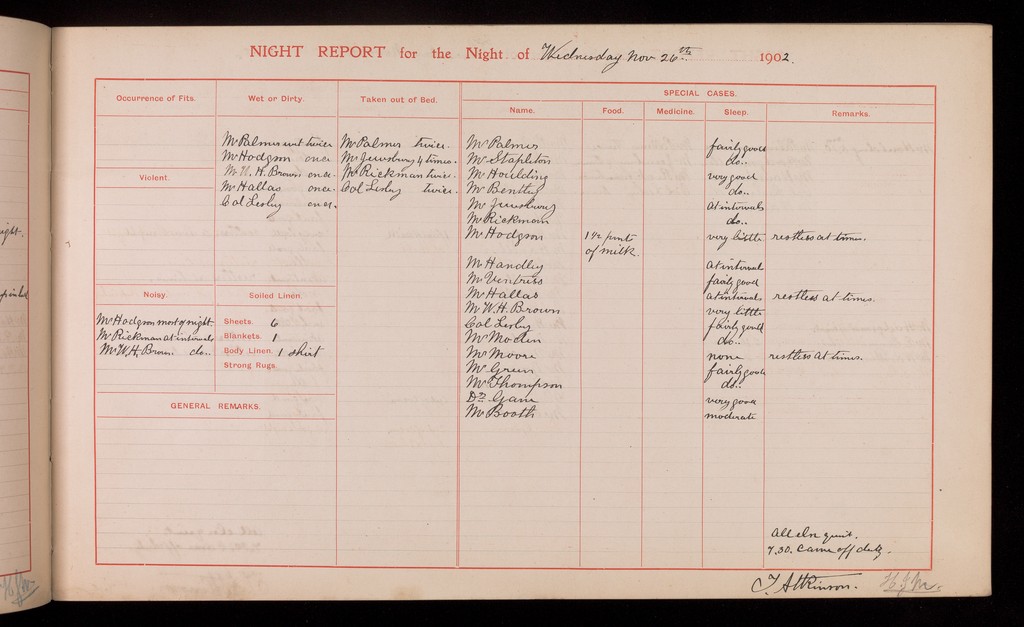 NIGHT REPORT for the Night of Wednesday Nov 26th 1902.
Occurrence of Fits.
Violent.
Noisy.
Mr Hodgson most of night
Mr Rickman at intervals
Mr W.H. Brown. do..
Wet or Dirty.
Mr Palmer wet twice
Mr Hodgson once
Mr W.H. Brown once.
Mr Hallas once.
Col Lesley once.
Soiled Linen.
Sheets. 6
Blankets. 1
Body Linen. 1 shirt
Strong Rugs.
GENERAL REMARKS.
Taken out of Bed.
Mr Palmer twice.
Mr Jewsbury 4 times.
Mr Rickman twice.
Col Lesley twice.
SPECIAL CASES.
Name. Food. Medicine. Sleep. Remarks.
Mr Palmer fairly good
Mr Stapleton do..
Mr Houlding very good
Mr Bentley do..
Mr Jewsbury at intervals
Mr Rickman do..
Mr Hodgson 1½ pints very little restless at times.
of milk.
Mr Handley at interval
Mr Ventriss fairly good
Mr Hallas at intervals restless at times.
Mr W.H. Brown very little
Col Lesley fairly good
Mr do..
Mr Moore none restless at times.
Mr Green fairly good
Mr Thompson do..
Dr Game very good
Mr Booth moderate
All else quiet.
7.30. Came off duty.
T. Atkinson.